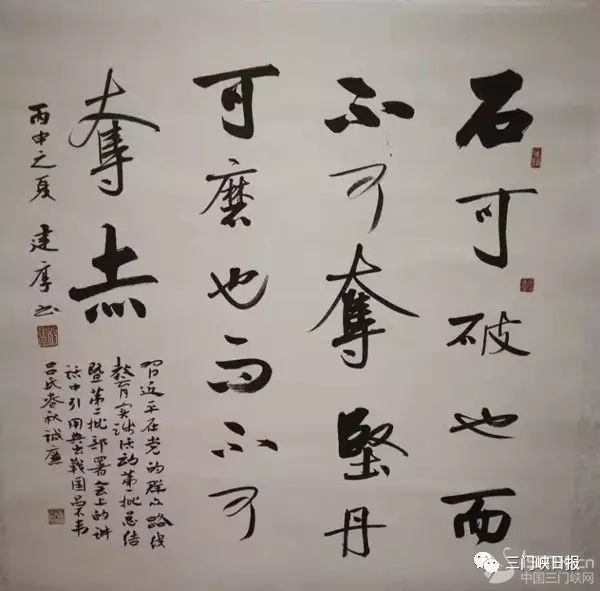 石可破也而
不可奪堅丹
可磨也而不可
奪赤
丙申之夏 建厚书
习近平在党的群众路线
教育实践活动第一批总结
暨第二批部署会上的讲
话中引用典出戰国吕不韦
吕氏春秋诚廉
三门峡日报
中国三门峡网